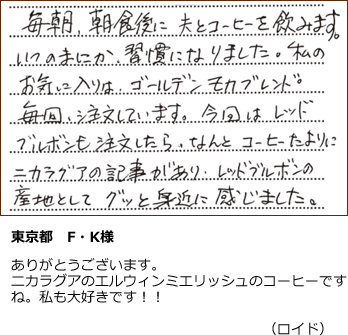 毎朝、朝食後に夫とコーヒーを飲みます。
いつのまにか、習慣になりました。私の
お気に入りは、ゴールデンモカブレンド。
毎回、注文しています。今回は、レッド
ブルボンも注文したら、なんとコーヒーだよりに
ニカラグアの記事があり、レッドブルボンの
産地として グッと身近に感じました。
東京都　F・K様
ありがとうございます。
ニカラグアのエルウィンミエリッシュのコーヒーです
ね。私も大好きです！！
（ロイド）